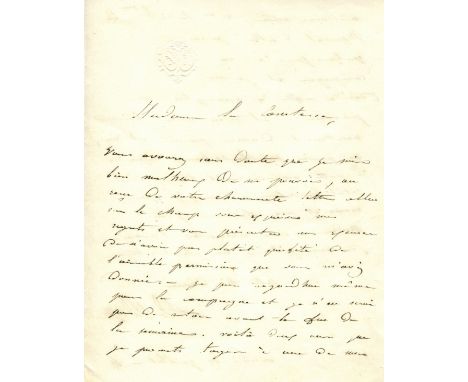 Madame la Comtesse,
Vous avouerez sans doute que je suis
bien malheureux de ne pouvoir, au
reçu de votre charmante lettre aller
sur le champ vous exprimer mes
regrets et vous présenter mes excuses
de n'avoir pas plutôt profité de
l'aimable permission que vous m'aviez
donnée. je pars aujourd'hui même
pour la campagne et je n'en serai
pas de retour avant la fin de
la semaine. voilà donc une
je